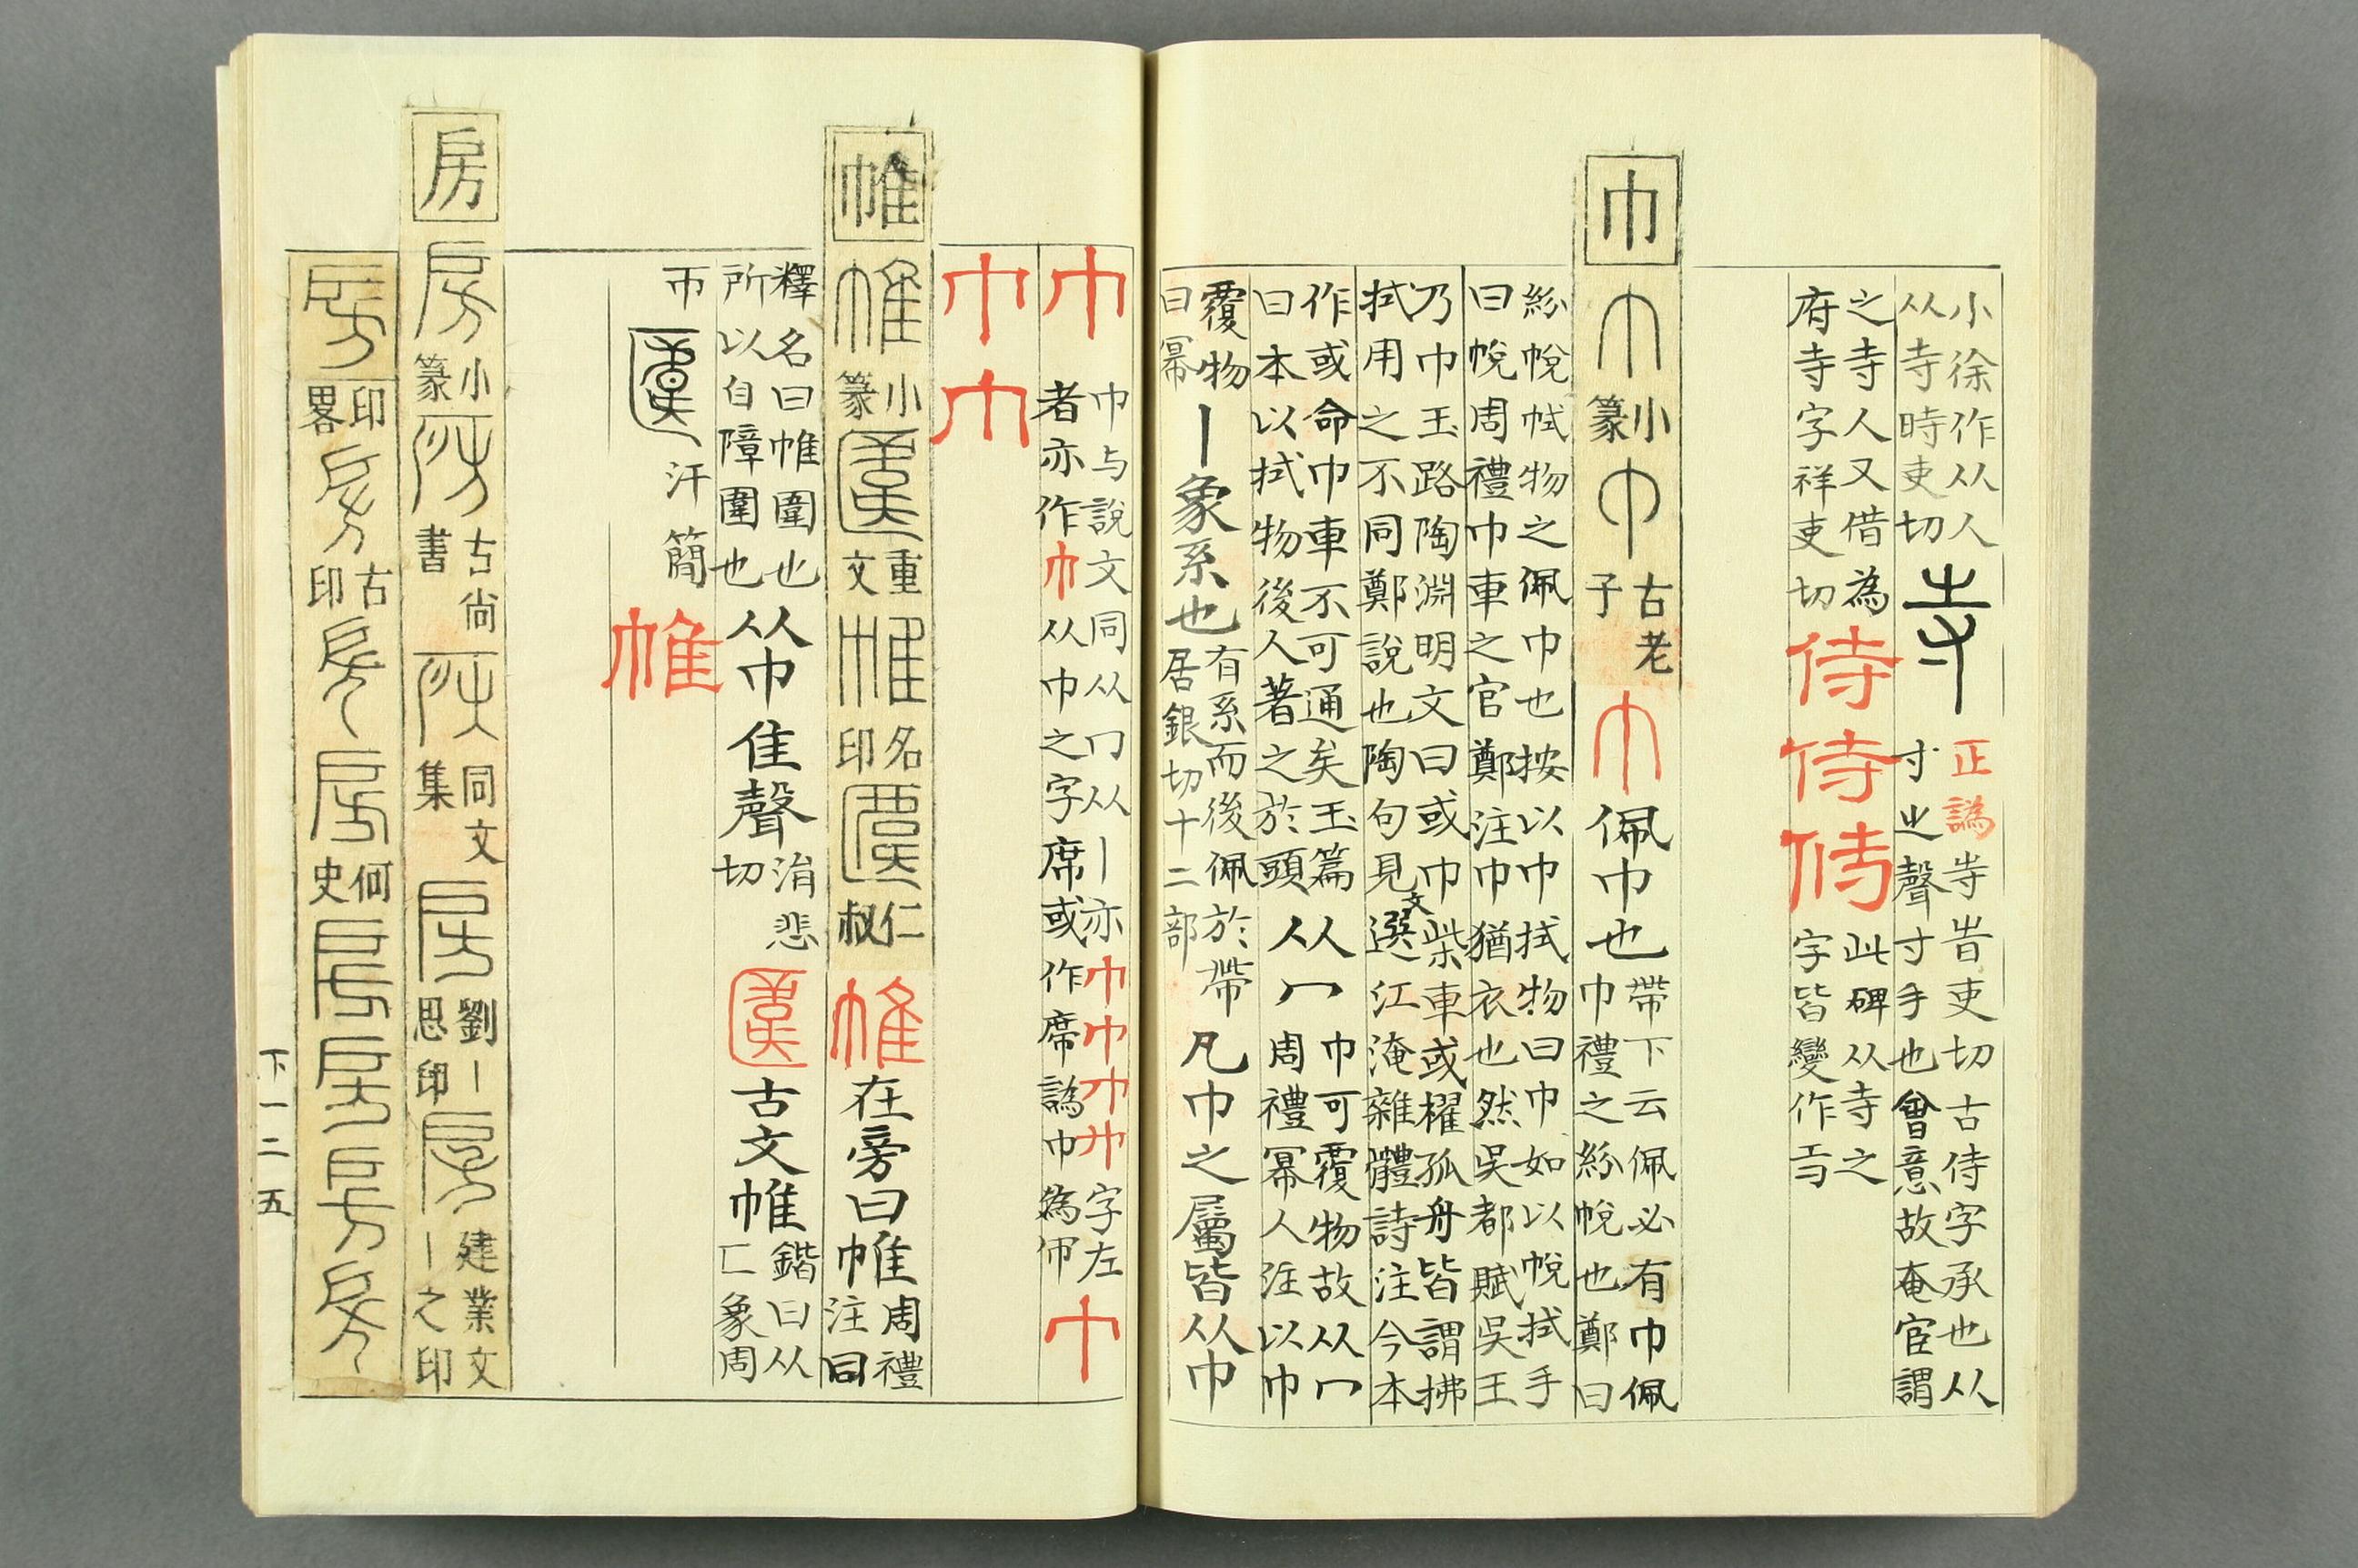 小徐作从人
从寺時吏切
寺
正譌寺旹吏切古侍字承也从
寸㞢聲寸手也會意故奄宦謂
之寺人又借為
府寺字祥吏切
侍侍侍
此碑从寺之
字皆變作
巾
巾小篆巾古老子巾佩巾也
帶下云佩必有巾佩
巾禮之紛帨也鄭曰
紛帨拭物之佩巾也按以巾拭物曰巾如以帨拭手
曰帨周禮巾車之官鄭注巾猶衣也然吳都賦吳王
乃巾玉路陶淵明文曰或巾柴車或櫂孤舟皆謂拂
拭用之不同鄭說也陶句見文選江淹雜體詩注今本
作或命巾車不可通矣玉篇
曰本以拭物後人著之於頭
从冂
巾可覆物故从冂
周禮冪人注以巾
覆物
曰冪
丨象系也
有系而後佩於帶
居銀切十二部
凡巾之屬皆从巾
巾
巾与說文同从冂从丨亦巾巾巾巾字左
者亦作巾从巾之字席或作席譌巾為
巾
巾巾
帷
帷小篆重文帷名印仁叔帷在旁曰帷
周禮
注同
釋名曰帷圍也
所以自障圍也
从巾隹聲
洧悲
切
古文帷
鍇曰从
匚象周
帀汗簡帷
房
房小篆房古尚書房同文集房劉丨思印房建業文丨之印
房印畧房古印房房何史房房房房
下一二五